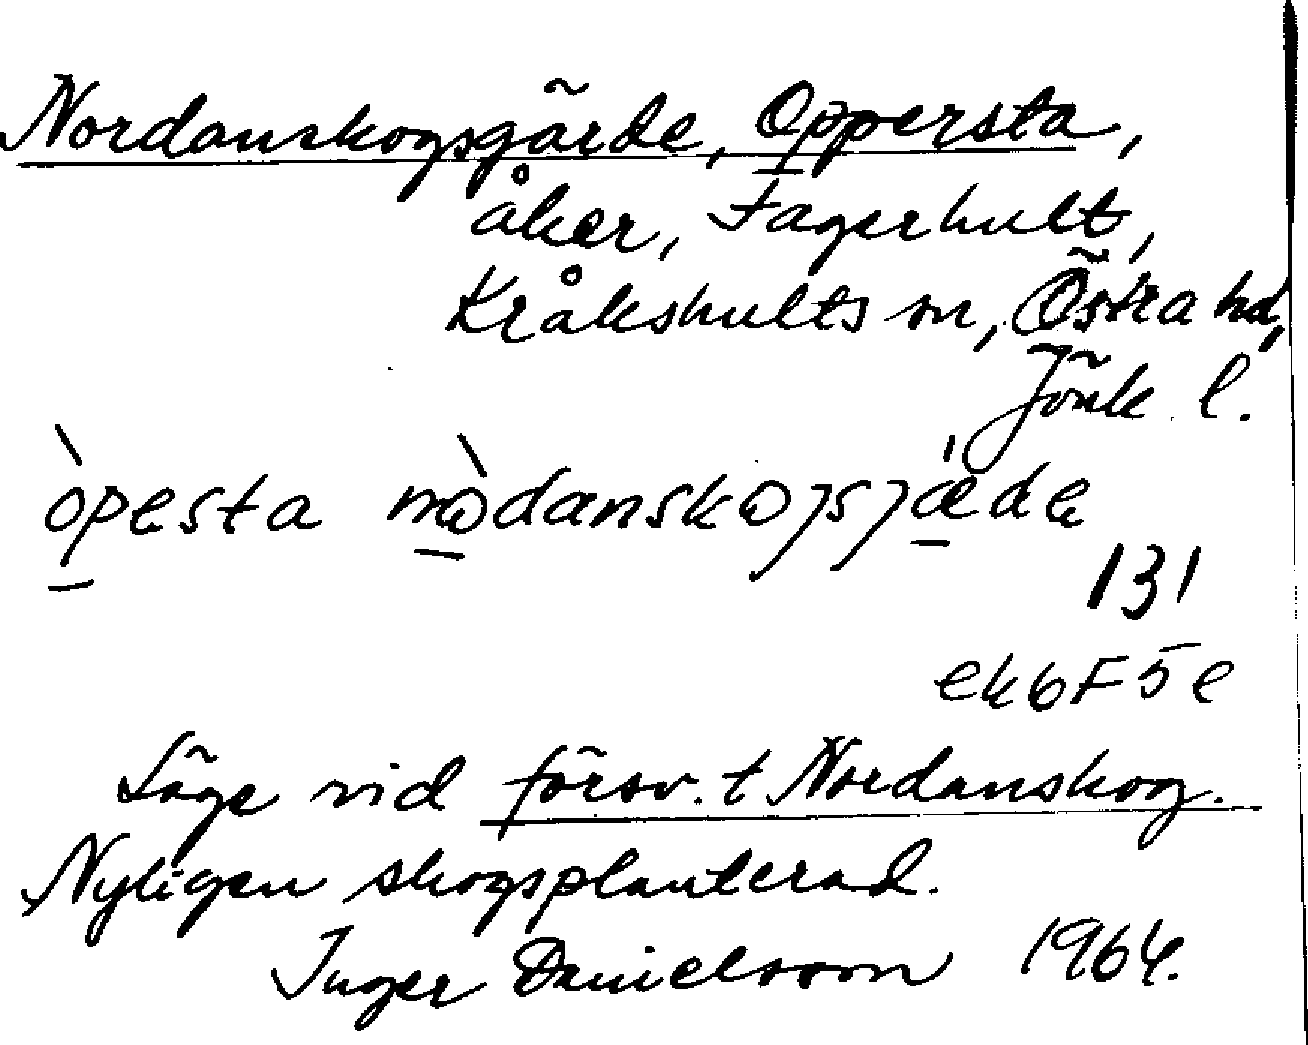 Nordanskogsgärde, Oppersta,
åker, Fagerhult,
Kråkshults sn, Östra hd,
Jönk. l.
òpesta nòdanskojsjǽde
131
ek 6F5e
Läge vid försv. t Nordanskog.
Nyligen skogsplanterad.
Inger Danielsson 1964.